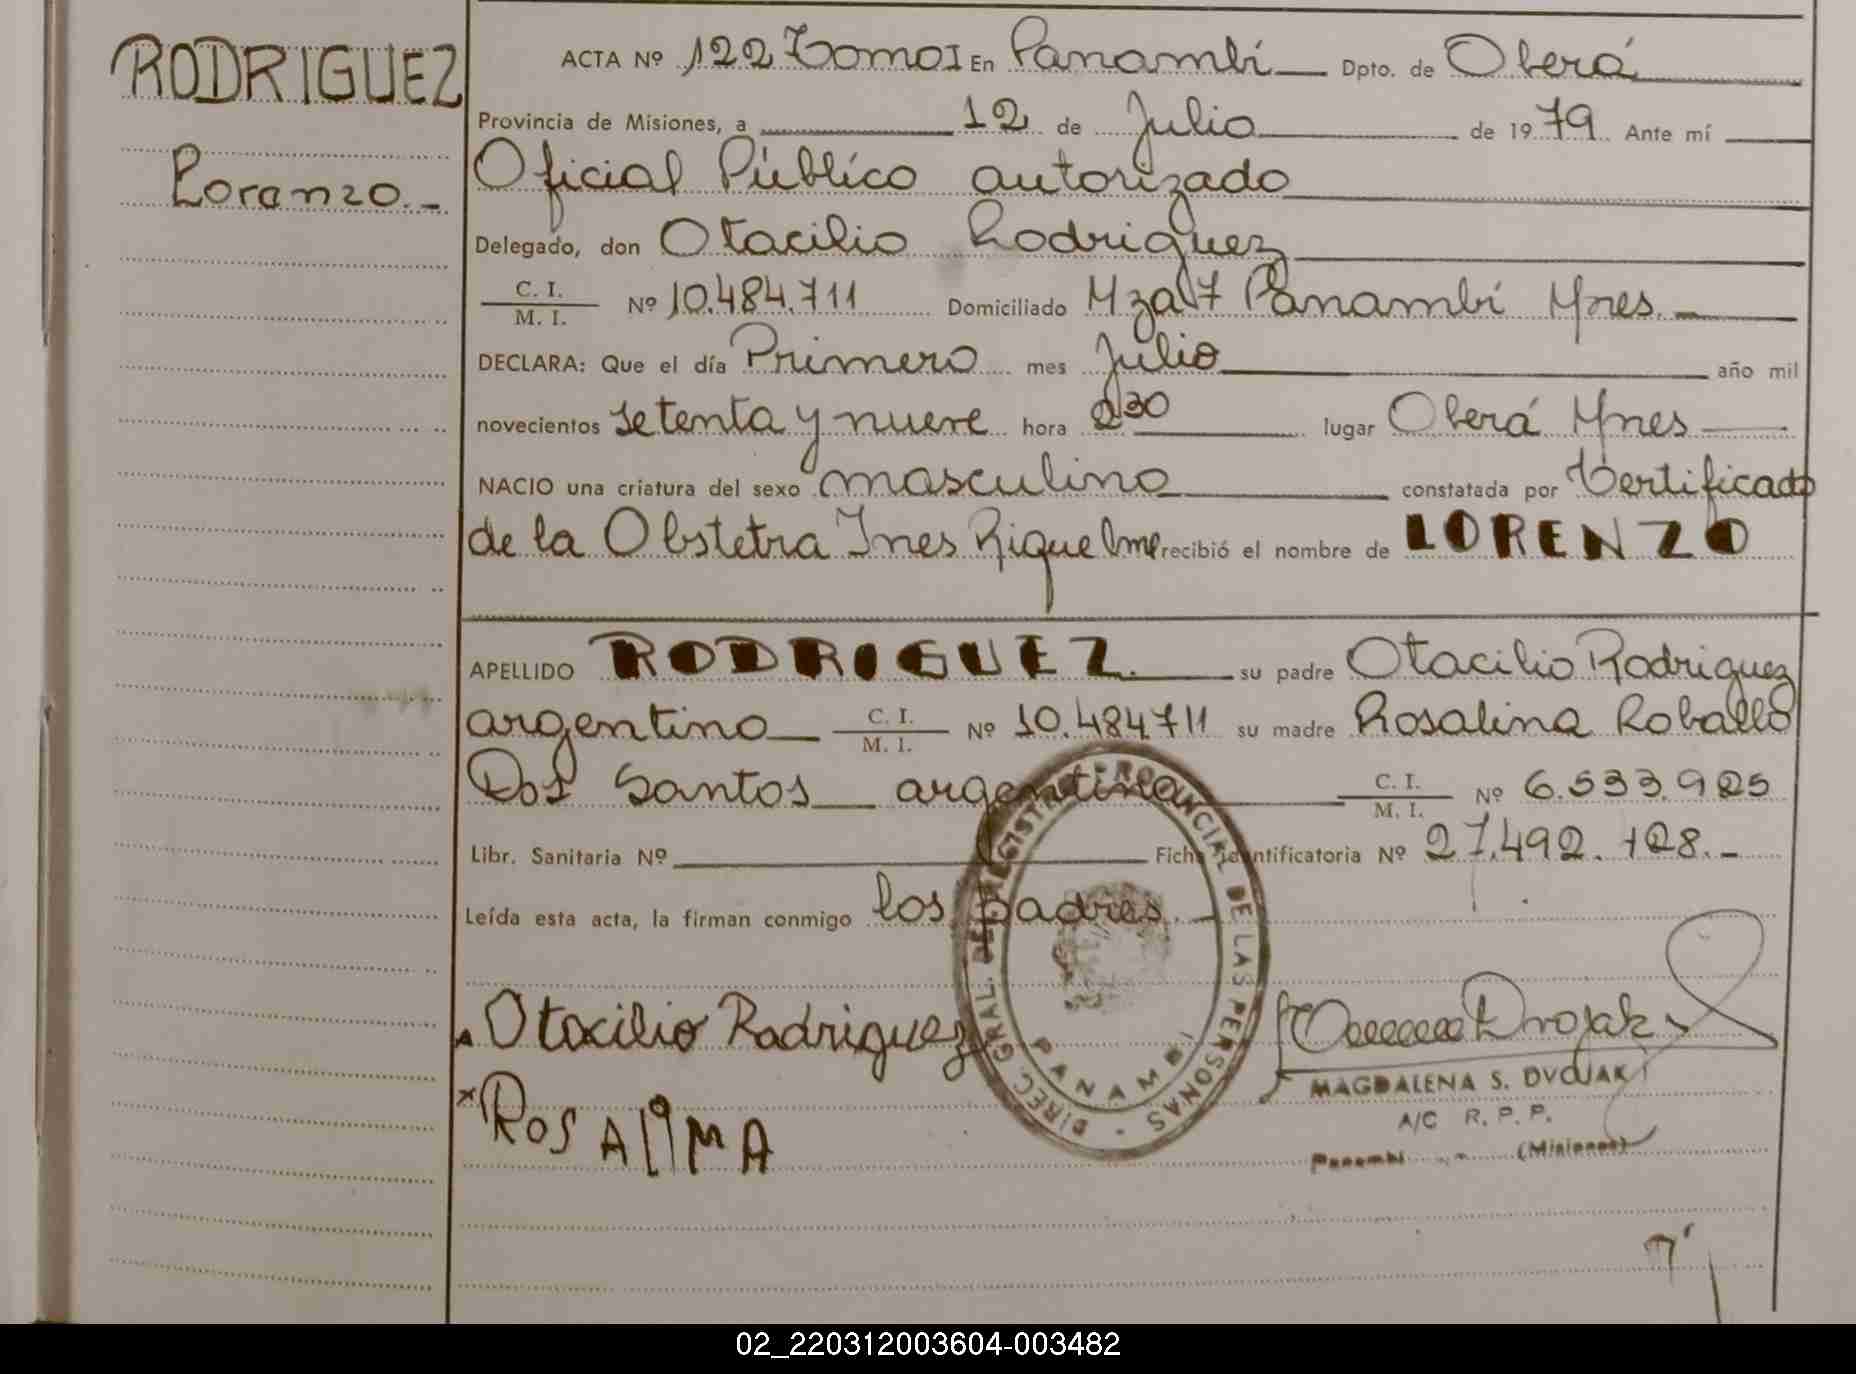 RODRIGUEZ
Loranzo.-
ACTA Nº 122 Tomo I En Panambí Dpto. de Oberá
Provincia de Misiones, a 12 de Julio de 1979 Ante mí
Oficial Público autorizado
Delegado, don Otacilio Rodriguez
C. I. / M. I. Nº 10.484.711 Domiciliado Mza 7 Panambí Mnes.
DECLARA: Que el día Primero mes Julio año mil
novecientos setenta y nueve hora 2,30 lugar Oberá Mnes
NACIO una criatura del sexo masculino constatada por Certificado
de la Obstetra Ines Riquelme recibió el nombre de LORENZO
APELLIDO RODRIGUEZ. su padre Otacilio Rodriguez
argentino C. I. / M. I. Nº 10.484711 su madre Rosalina Roballo
Dos Santos argentina C. I. / M. I. Nº 6.533.925
Libr. Sanitaria Nº Ficha identificatoria Nº 27.492.128.-
Leída esta acta, la firman conmigo los padres.
Otacilio Rodriguez
x ROSALINA
DIREC. GRAL. DE REGISTRO PROVINCIAL DE LAS PERSONAS -
PANAMBI
MAGDALENA S. DVOJAK
A/C R. P. P.
Panambi (Misiones)
02_220312003604-003482